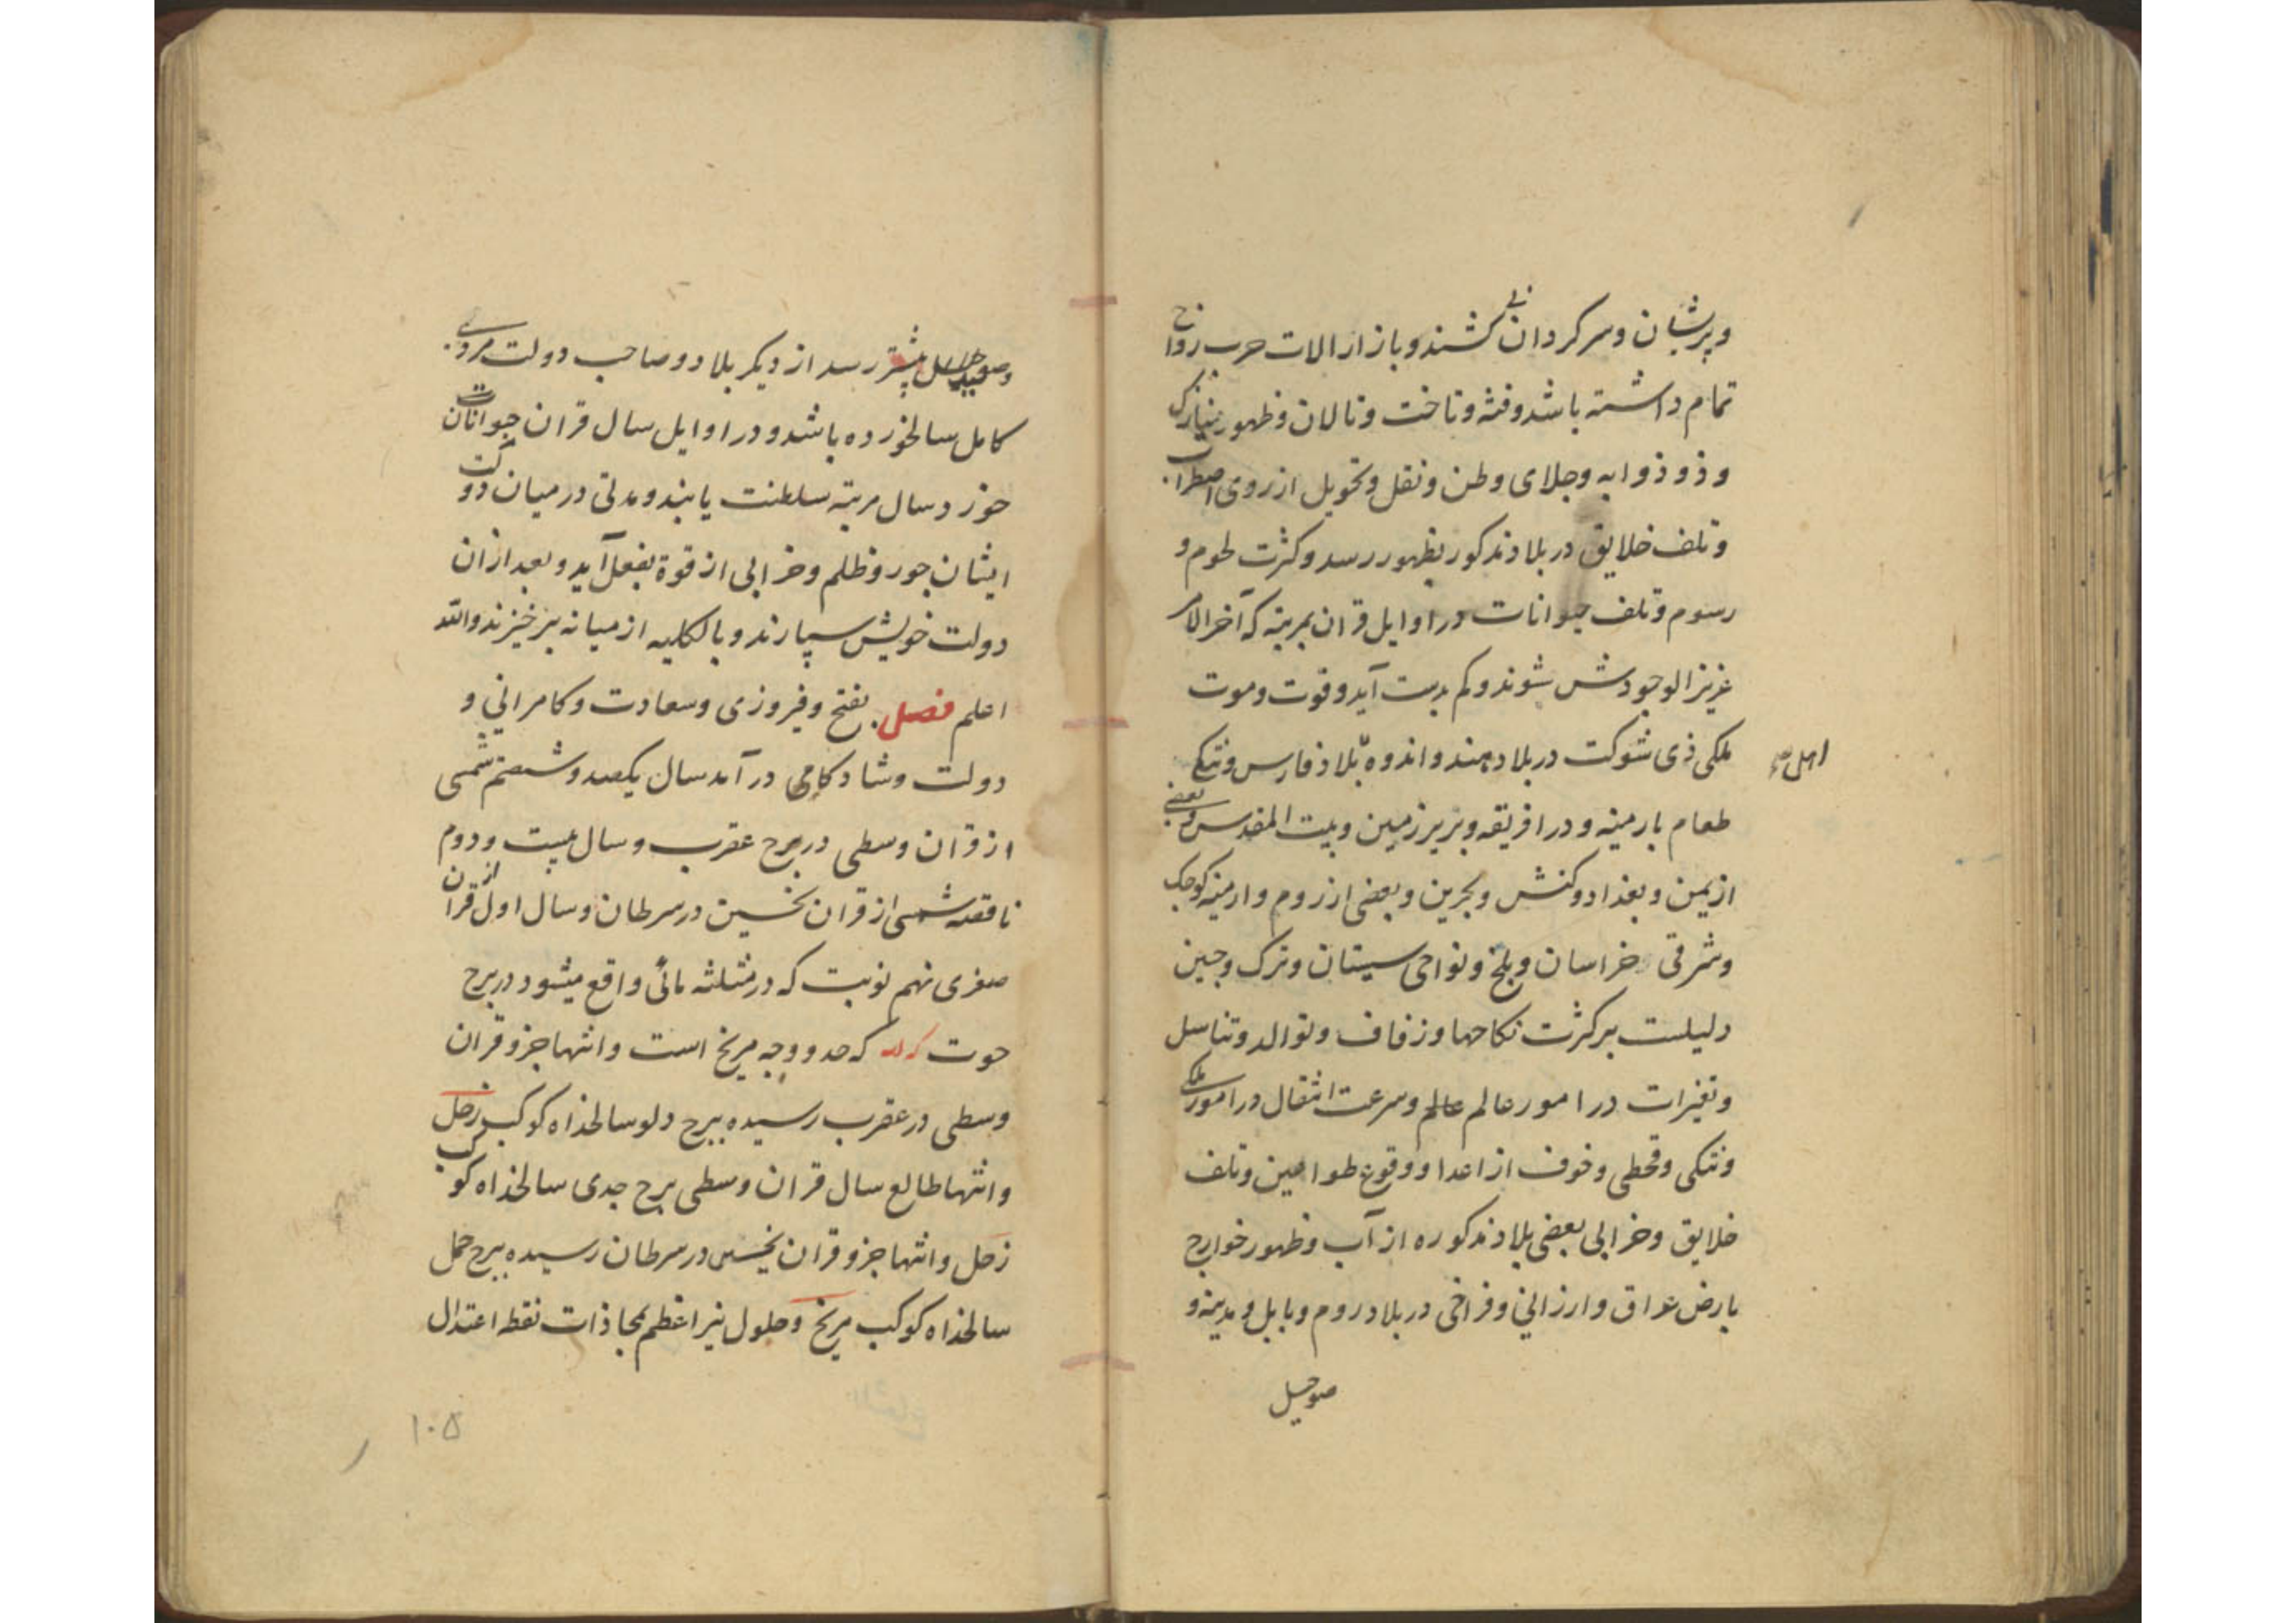 وپریشان وسرکردان کشند وبازار الات حرب رواج
تمام داشته باشد وفتنه وتاخت وتالان وظهور نیازک
وذو ذوابه وجلای وطن ونقل وتحویل از روی اضطراب
وتلف خلایق در بلاد مذکور بظهور رسد وکثرت لحوم و
رسوم وتلف حیوانات در اوایل قران بمرتبه که آخر الامر
عزیز الوجودش شوند وکم بدست آید وفوت وموت
ملکی ذی شوکت در بلاد هند واندوه بلاد فارس وتنکی
اهل
طعام بارمینه ودر افریقه وبربر زمین وبیت المقدس وبعضی
از یمن وبغداد وکنش وبحرین وبعضی از روم وارمینه کوچک
وشرقی خراسان وبلخ ونواحی سیستان وترک وچین
دلیلست بر کثرت نکاحها وزفاف وتوالد وتناسل
وتغیرات در امور عالم عالم وسرعت انتقال در امور ملکی
وتنکی وقحطی وخوف از اعدا ووقوع طواعین وتلف
خلایق وخرابی بعضی بلاد مذکوره از آب وظهور خوارج
بارض عراق وارزانی وفراخی در بلاد روم وبابل ومدینه و
موصل
بیشتر رسد از دیکر بلاد وصاحب دولت مردی
کامل سالخورده باشد ودر اوایل سال قران جوانان
خورد سال مرتبه سلطنت یابند ومدتی در میان دولت
ایشان جور وظلم وخرابی از قوة بفعل آید وبعد از ان
دولت خویش سپارند وبالکلیه از میانه برخیزند والله
اعلم فصل بفتح وفیروزی وسعادت وکامرانی و
دولت وشادکامی در آمد سال یکصد وشصتم شمسی
از قران وسطی در برج عقرب وسال بیست ودوم
ناقصه شمسی از قران نحسین در سرطان وسال اول از قران
صغری نهم نوبت که در مثلثه مائی واقع میشود در برج
حوت که حد ووجه مریخ است وانتها جزو قران
وسطی در عقرب رسیده ببرج دلو سالخداه کوکب زحل
وانتها طالع سال قران وسطی برج جدی سالخداه کوکب
زحل وانتها جزو قران نحسین در سرطان رسیده ببرج حمل
سالخداه کوکب مریخ وحلول نیر اعظم بمحاذات نقطه اعتدال
۱۰۵